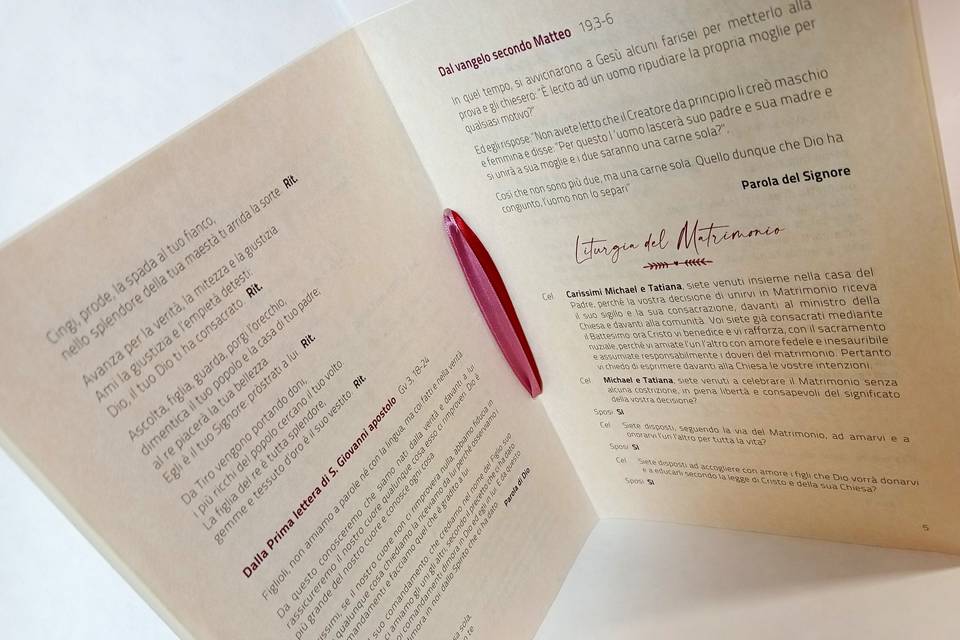 Cingi, prode, la spada al tuo fianco,
nello splendore della tua maestà ti arrida la sorte Rit.
Avanza per la verità, la mitezza e la giustizia
Ami la giustizia e l'empietà detesti:
Dio, il tuo Dio ti ha consacrato Rit.
Ascolta, figlia, guarda, porgi l'orecchio,
dimentica il tuo popolo e la casa di tuo padre;
al re piacerà la tua bellezza
Egli è il tuo Signore: pròstrati a lui Rit.
Da Tiro vengono portando doni,
i più ricchi del popolo cercano il tuo volto.
La figlia del re è tutta splendore,
gemme e tessuto d'oro è il suo vestito Rit.
Dalla Prima lettera di S. Giovanni apostolo Gv 3, 18-24
Figlioli, non amiamo a parole né con la lingua, ma coi fatti e nella verità
Da questo conosceremo che siamo nati dalla verità e davanti a lui
rassicureremo il nostro cuore qualunque cosa esso ci rimproveri. Dio è
più grande del nostro cuore e conosce ogni cosa
issimi, se il nostro cuore non ci rimprovera nulla, abbiamo fiducia in
qualunque cosa chiediamo la riceviamo da lui perché osserviamo i
mandamenti e facciamo quel che è gradito a lui.
suo comandamento: che crediamo nel nome del Figlio suo
ci amiamo gli uni gli altri, secondo il precetto che ci ha dato
oi comandamenti dimora in Dio ed egli in lui. E da questo
dimora in noi: dallo Spirito che ci ha dato
Parola di Dio
sa sola,
Dal vangelo secondo Matteo 19,3-6
In quel tempo, si avvicinarono a Gesù alcuni farisei per metterlo alla
prova e gli chiesero: "È lecito ad un uomo ripudiare la propria moglie per
qualsiasi motivo?"
Ed egli rispose: "Non avete letto che il Creatore da principio li creò maschio
e femmina e disse: "Per questo l'uomo lascerà suo padre e sua madre e
si unirà a sua moglie e i due saranno una carne sola?".
Così che non sono più due, ma una carne sola. Quello dunque che Dio ha
congiunto, l'uomo non lo separi"
Parola del Signore
Liturgia del Matrimonio
Cel Carissimi Michael e Tatiana, siete venuti insieme nella casa del
Padre, perché la vostra decisione di unirvi in Matrimonio riceva
il suo sigillo e la sua consacrazione, davanti al ministro della
Chiesa e davanti alla comunità. Voi siete già consacrati mediante
il Battesimo: ora Cristo vi benedice e vi rafforza, con il sacramento
nuziale, perché vi amiate l'un l'altro con amore fedele e inesauribile
e assumiate responsabilmente i doveri del matrimonio. Pertanto
vi chiedo di esprimere davanti alla Chiesa le vostre intenzioni.
Cel Michael e Tatiana, siete venuti a celebrare il Matrimonio senza
alcuna costrizione, in piena libertà e consapevoli del significato
della vostra decisione?
Sposi Sì
Cel Siete disposti, seguendo la via del Matrimonio, ad amarvi e a
onorarvi l'un l'altro per tutta la vita?
Sposi Sì
Cel Siete disposti ad accogliere con amore i figli che Dio vorrà donarvi
e a educarli secondo la legge di Cristo e della sua Chiesa?
Sposi Sì
5